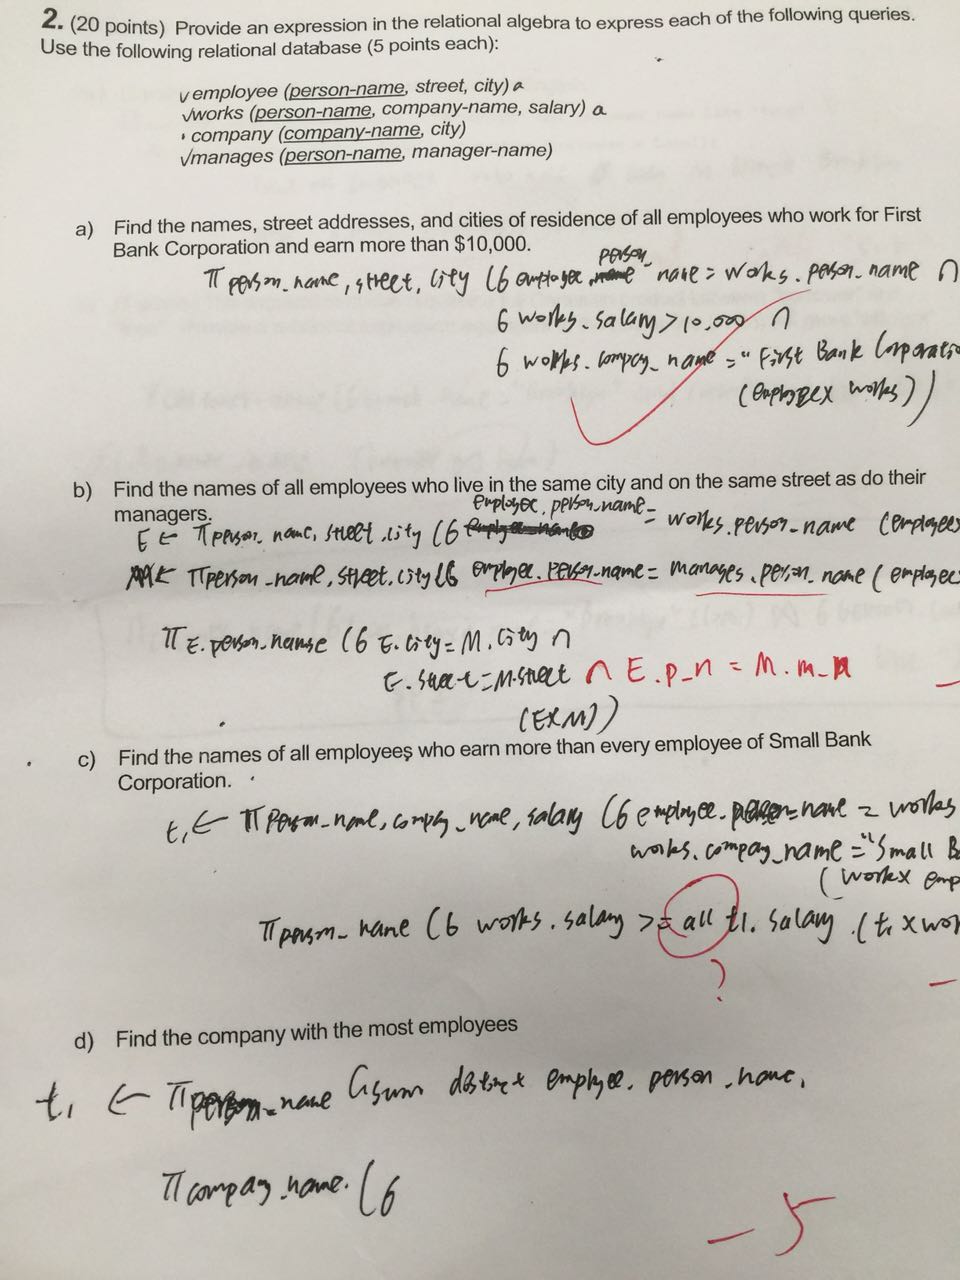 2. (20 points) Provide an expression in the relational algebra to express each of the following queries.
Use the following relational database (5 points each):
✓employee (person-name, street, city) a
✓works (person-name, company-name, salary) a
· company (company-name, city)
✓manages (person-name, manager-name)
a) Find the names, street addresses, and cities of residence of all employees who work for First
Bank Corporation and earn more than $10,000.
person_
π person_name, street, city (6 employee. name = works. person_name ∩
6 works. salary > 10,000 ∩
6 works. compay_name = "First Bank Corporatio
(employee x works))
b) Find the names of all employees who live in the same city and on the same street as do their
managers.
employee. person_name =
E ← π person_name, street, city (6 works. person_name (employees
← π person_name, street, city (6 employee. person_name = manages. person_name (employee
π E. person_name (6 E. city = M. city ∩
E. street = M. street ∩ E. p_n = M. m_n
(E x M))
c) Find the names of all employees who earn more than every employee of Small Bank
Corporation.
t1 ← π person_name, compay_name, salary (6 employee. person_name = works
works. compay_name = "Small B
(work x emp
π person_name (6 works. salary >= all t1. salary (t1 x wor
?
d) Find the company with the most employees
t1 ← π person_name G sum distinct employee. person_name,
π compay_name. (6
-5